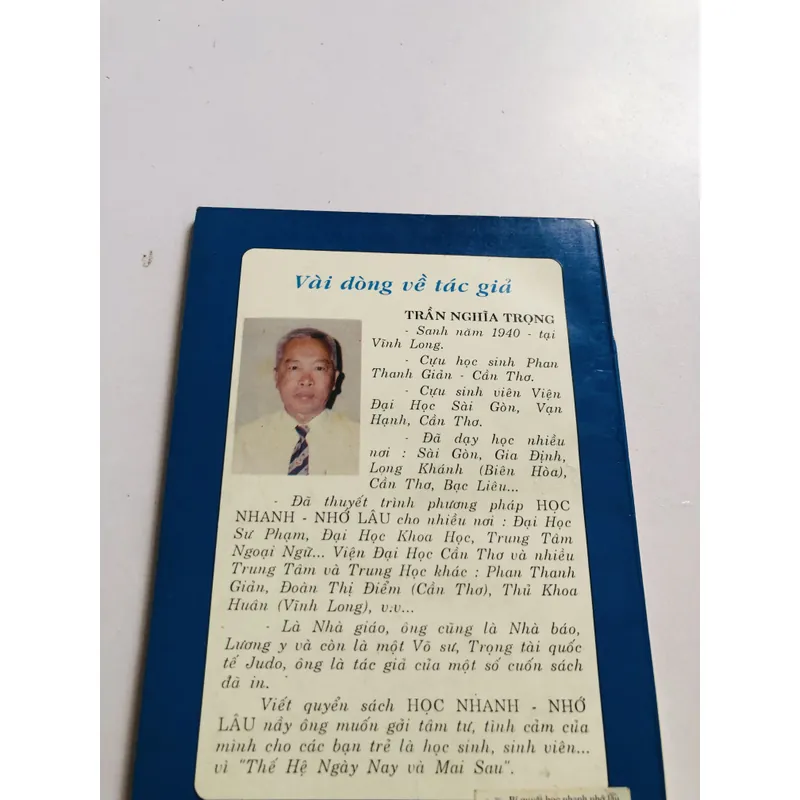 Vài dòng về tác giả
TRẦN NGHĨA TRỌNG
- Sanh năm 1940 - tại
Vĩnh Long.
- Cựu học sinh Phan
Thanh Giản - Cần Thơ.
- Cựu sinh viên Viện
Đại Học Sài Gòn, Vạn
Hạnh, Cần Thơ.
- Đã dạy học nhiều
nơi : Sài Gòn, Gia Định,
Long Khánh (Biên Hòa),
Cần Thơ, Bạc Liêu...
- Đã thuyết trình phương pháp HỌC
NHANH - NHỚ LÂU cho nhiều nơi : Đại Học
Sư Phạm, Đại Học Khoa Học, Trung Tâm
Ngoại Ngữ... Viện Đại Học Cần Thơ và nhiều
Trung Tâm và Trung Học khác : Phan Thanh
Giản, Đoàn Thị Điểm (Cần Thơ), Thủ Khoa
Huân (Vĩnh Long), v.v...
- Là Nhà giáo, ông cũng là Nhà báo,
Lương y và còn là một Võ sư, Trọng tài quốc
tế Judo, ông là tác giả của một số cuốn sách
đã in.
Viết quyển sách HỌC NHANH - NHỚ
LÂU nầy ông muốn gởi tâm tư, tình cảm của
mình cho các bạn trẻ là học sinh, sinh viên...
vì "Thế Hệ Ngày Nay và Mai Sau".
Bí quyết học nhanh nhớ lâu